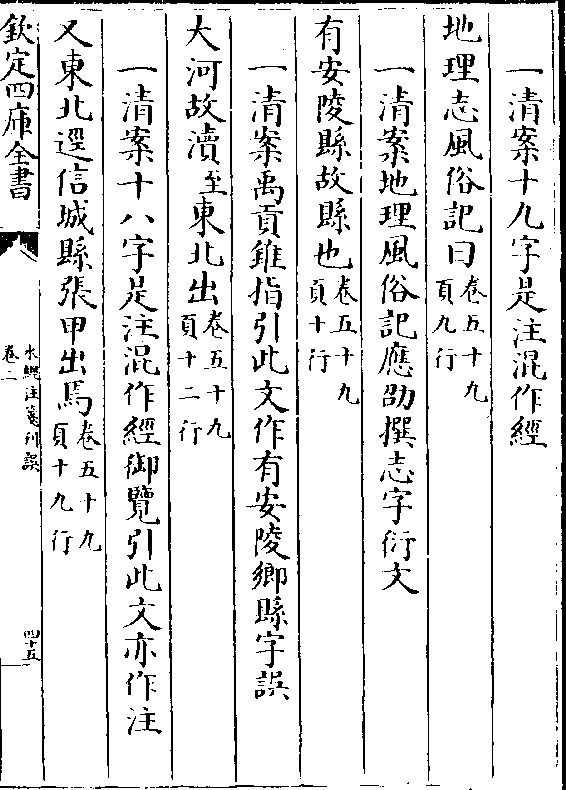 一清案十九字是注混作經
地理志風俗記曰卷五十九
頁九行
一清案地理風俗記應劭撰志字衍文
有安陵縣故縣也卷五十九
頁十行
一清案禹貢錐指引此文作有安陵鄉縣字誤
大河故瀆至東北出卷五十九
頁十二行
一清案十八字是注混作經御覽引此文亦作注
又東北逕信城縣張甲出焉卷五十九
頁十九行
欽定四庫全書
水經注箋刊誤
卷二
四十五